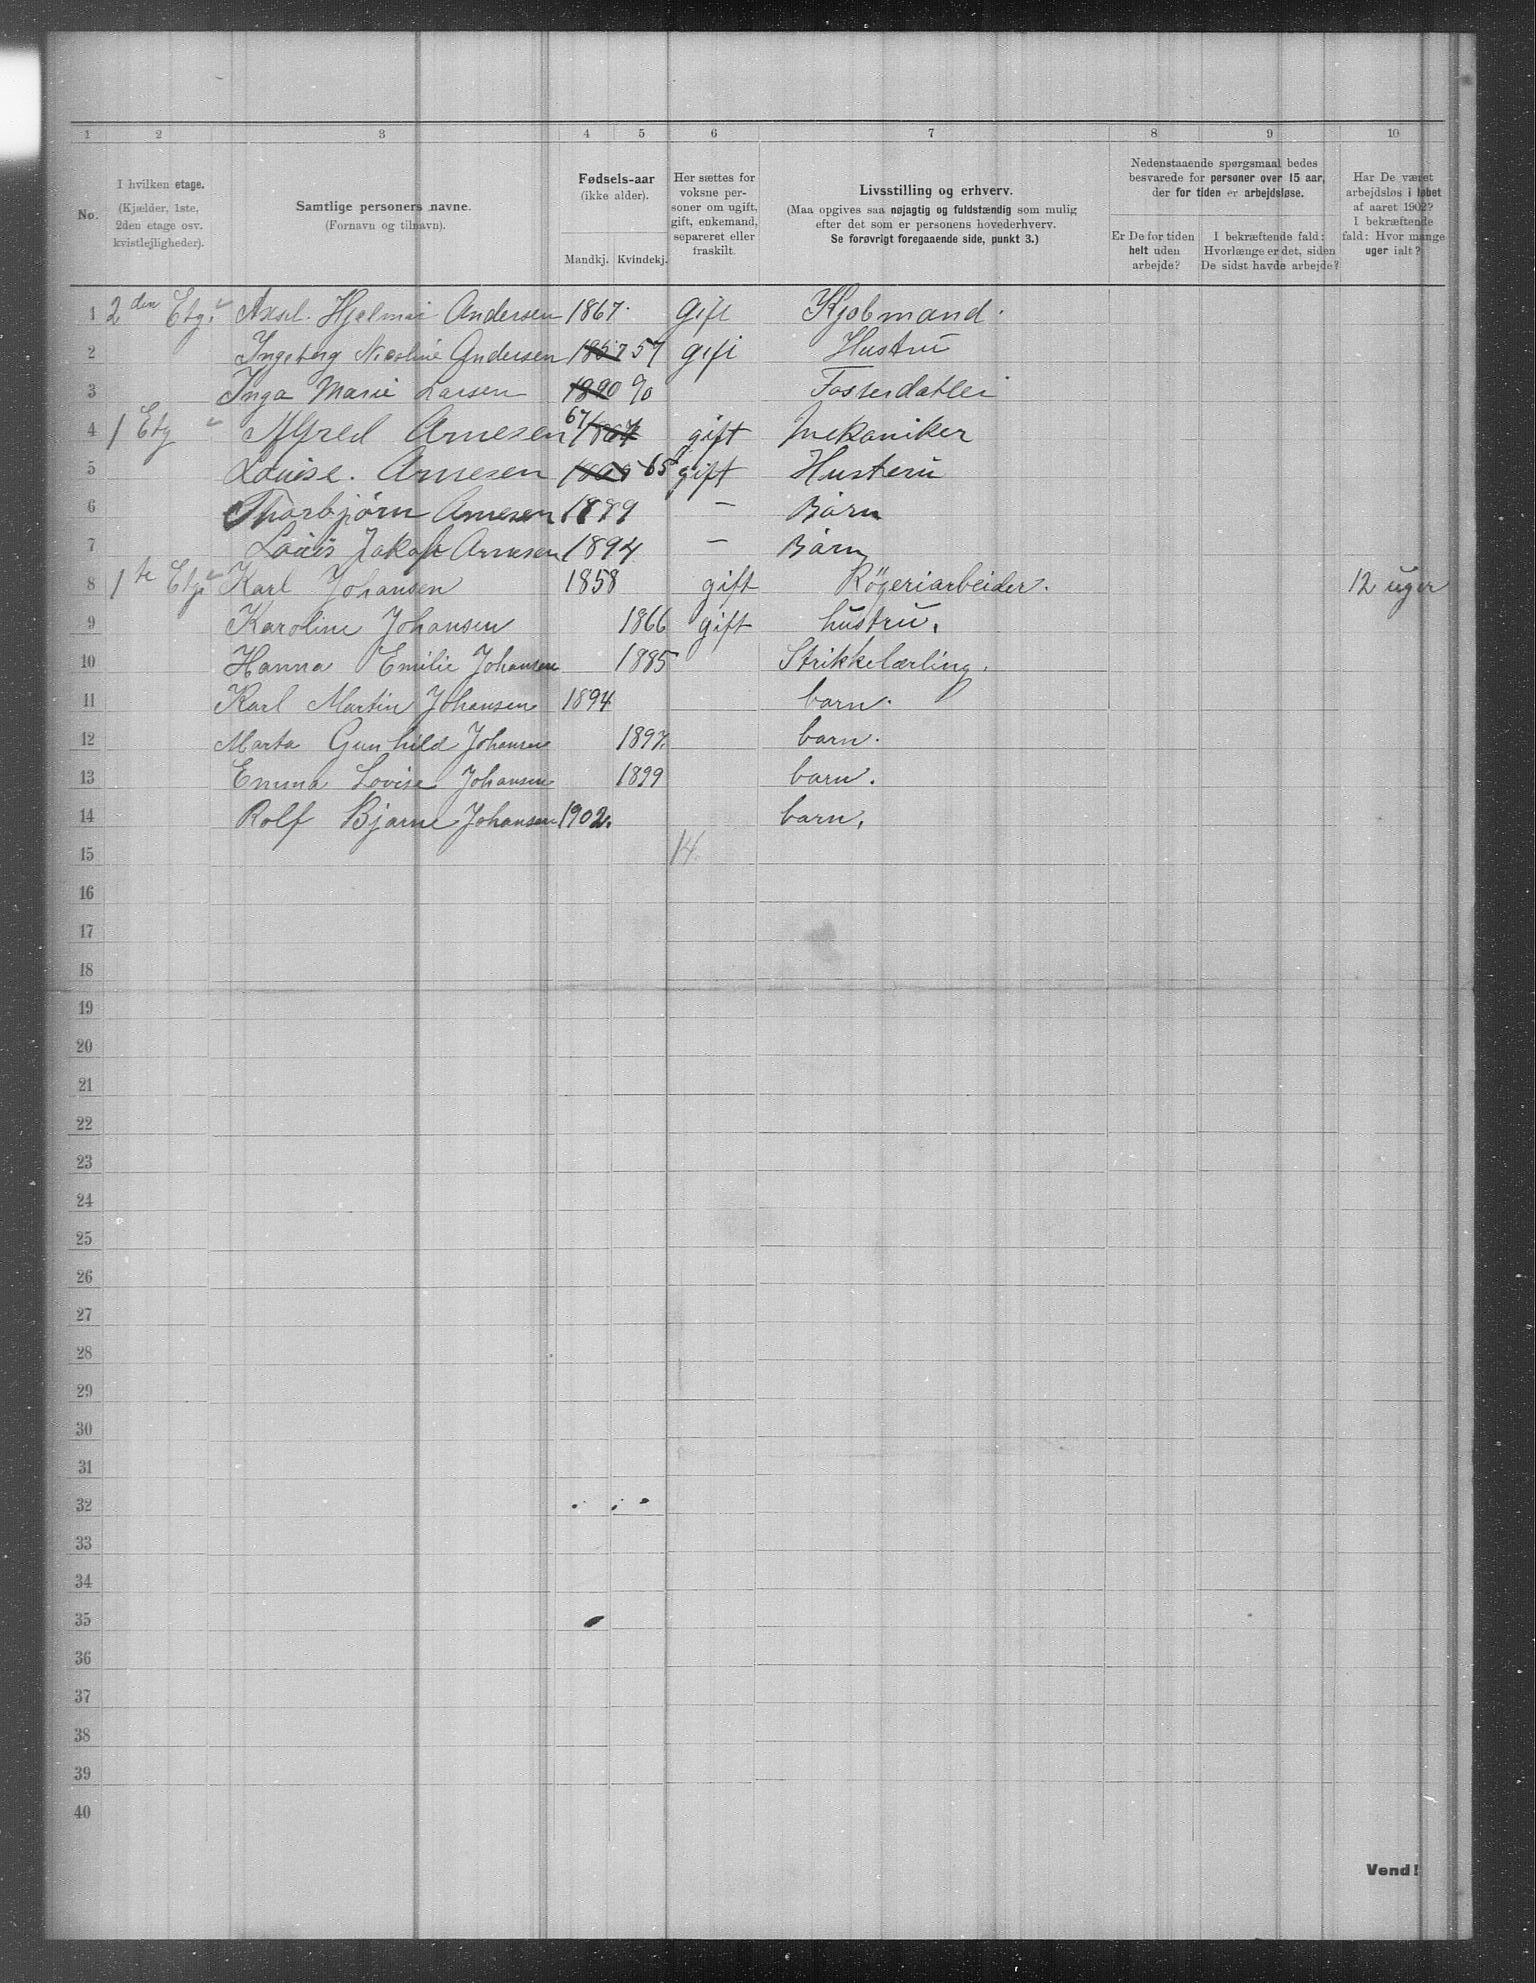 1 2 3 4 5 6 7 8 9 10
No.
I hvilken etage.
(Kjælder, 1ste,
2den etage osv.
kvistlejligheder).
Samtlige personers navne.
(Fornavn og tilnavn).
Fødsels-aar
(ikke alder).
Mandkj. Kvindekj.
Her sættes for
voksne per-
soner om ugift,
gift, enkemand,
separeret eller
fraskilt.
Livsstilling og erhverv.
(Maa opgives saa nøjagtig og fuldstændig som mulig
efter det som er personens hovederhverv.
Se forøvrigt foregaaende side, punkt 3.)
Nedenstaaende spørgsmaal bedes
besvarede for personer over 15 aar,
der for tiden er arbejdsløse.
Er De for tiden
helt uden
arbejde?
I bekræftende fald:
Hvorlænge er det, siden
De sidst havde arbejde?
Har De været
arbejdsløs i løbet
af aaret 1902?
I bekræftende
fald: Hvor mange
uger ialt?
1 2 den Etg. Axsel. Hjelmar Andersen 1867. Gift Kjøbmand.
2 Ingeborg Nicoline Andersen 1857 57 gift Hustru
3 Inga Marie Larsen 1890 90 Fosterdatter
4 1 Etg Alfred Arnesen 67 1867 gift Mekaniker
5 Louise. Arnesen 65 gift Husteru
6 Thorbjørn Arnesen 1889 – Barn
7 Louis Jakob Arnesen 1894 – Barn
8 1 te Etg. Karl Johansen 1858 gift Røgeriarbeider. 12 uger
9 Karoline Johansen 1866 gift hustru.
10 Hanna Emilie Johansen 1885 Strikkelærling.
11 Karl Martin Johansen 1894 barn.
12 Marta Gunhild Johansen 1897. barn.
13 Emma Lovise Johansen 1899 barn.
14 Rolf Bjarne Johansen 1902. barn.
15 14.
16
17
18
19
20
21
22
23
24
25
26
27
28
29
30
31
32
33
34
35
36
37
38
39
40
Vend!